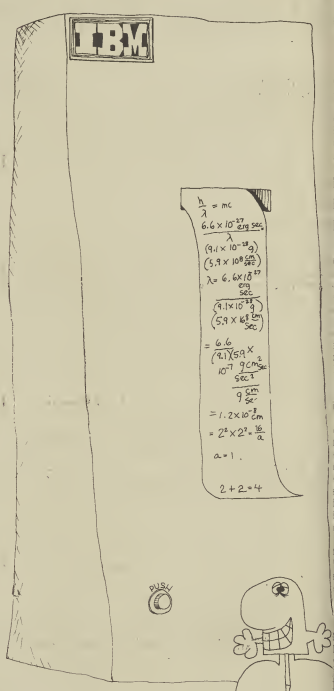 IBM
h/λ = mc
6.6 × 10⁻²⁷ erg sec.
λ
(9.1 × 10⁻²⁸ g)
(5.9 × 10⁸ cm/sec)
λ = 6.6 × 10⁻²⁷
erg
sec
(9.1 × 10⁻²⁸ g)
(5.9 × 10⁸ cm/sec)
= 6.6
(9.1)(5.9 ×
10⁻⁷ g cm² sec
sec²
g cm/sec
= 1.2 × 10⁻⁸ cm
= 2² × 2² = 16/a
a = 1.
2 + 2 = 4
PUSH